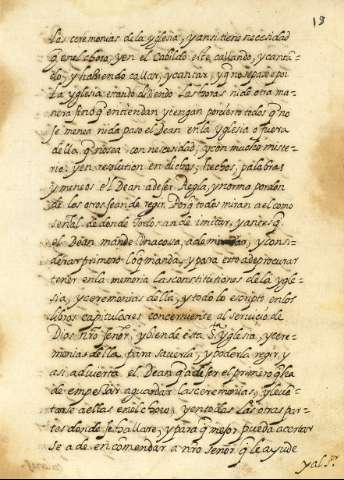 13
las ceremonias de la yglesia, y ansi tiene necesidad
q̃ en el choro, y en el Cabildo este callando, y cantã
do, y habiendo callar, y cantar, y q̃ no se pasee por
la yglesia estando diciendo las horas ni de otra ma
nera sino q̃ entiendan y tengan por cierto todos q̃ no
se menea ni da paso el Dean en la yglesia o fuera
della, q̃ no sea con necesidad, y con mucho miste
rio: y en resolution en dichos, hechos, palabras
y meneos el Dean a de ser Regla, y norma por dõn
de los otros se an de regir. Porq̃ todos miran a el como
señal de donde todos an de imitar, y antes q̃
el Dean mande una cosa, a de mirar, y consi
derar primero lo q̃ manda, y para esto a de procurar
tener en la memoria las constitutiones de la ygle
sia, y ceremonias della, y todo lo escripto en los
libros capitulares concerniente al servicio de
Dios nr̃o señor, y bien de esta S.ta yglesia, y cere
monias della, para saverla, y poderla regir, y
asi advierta el Dean q̃ a de ser el primero q̃ ha
de empeçar a guardar las ceremonias, y leva
tarse a ellas en el choro, y en todas las otras par
tes donde se hallare, y para q̃ mejor pueda acertar
se a de encomendar a nr̃o señor q̃ le ayude
y al S.r